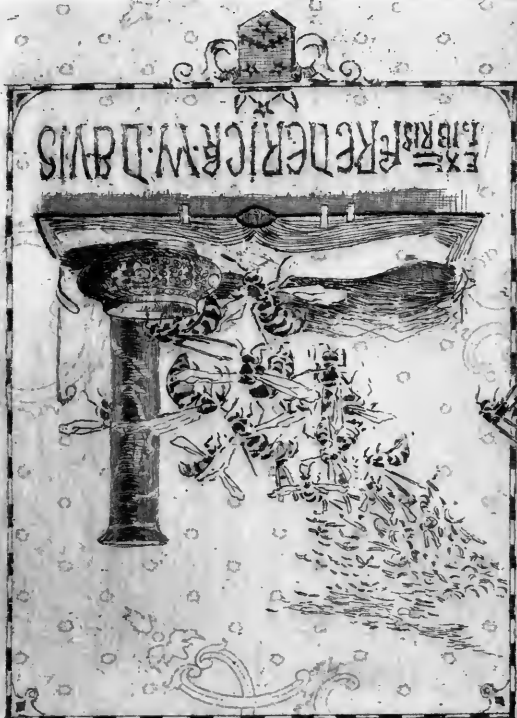 EX= LIBRIS FREDERICK.W.DAVIS